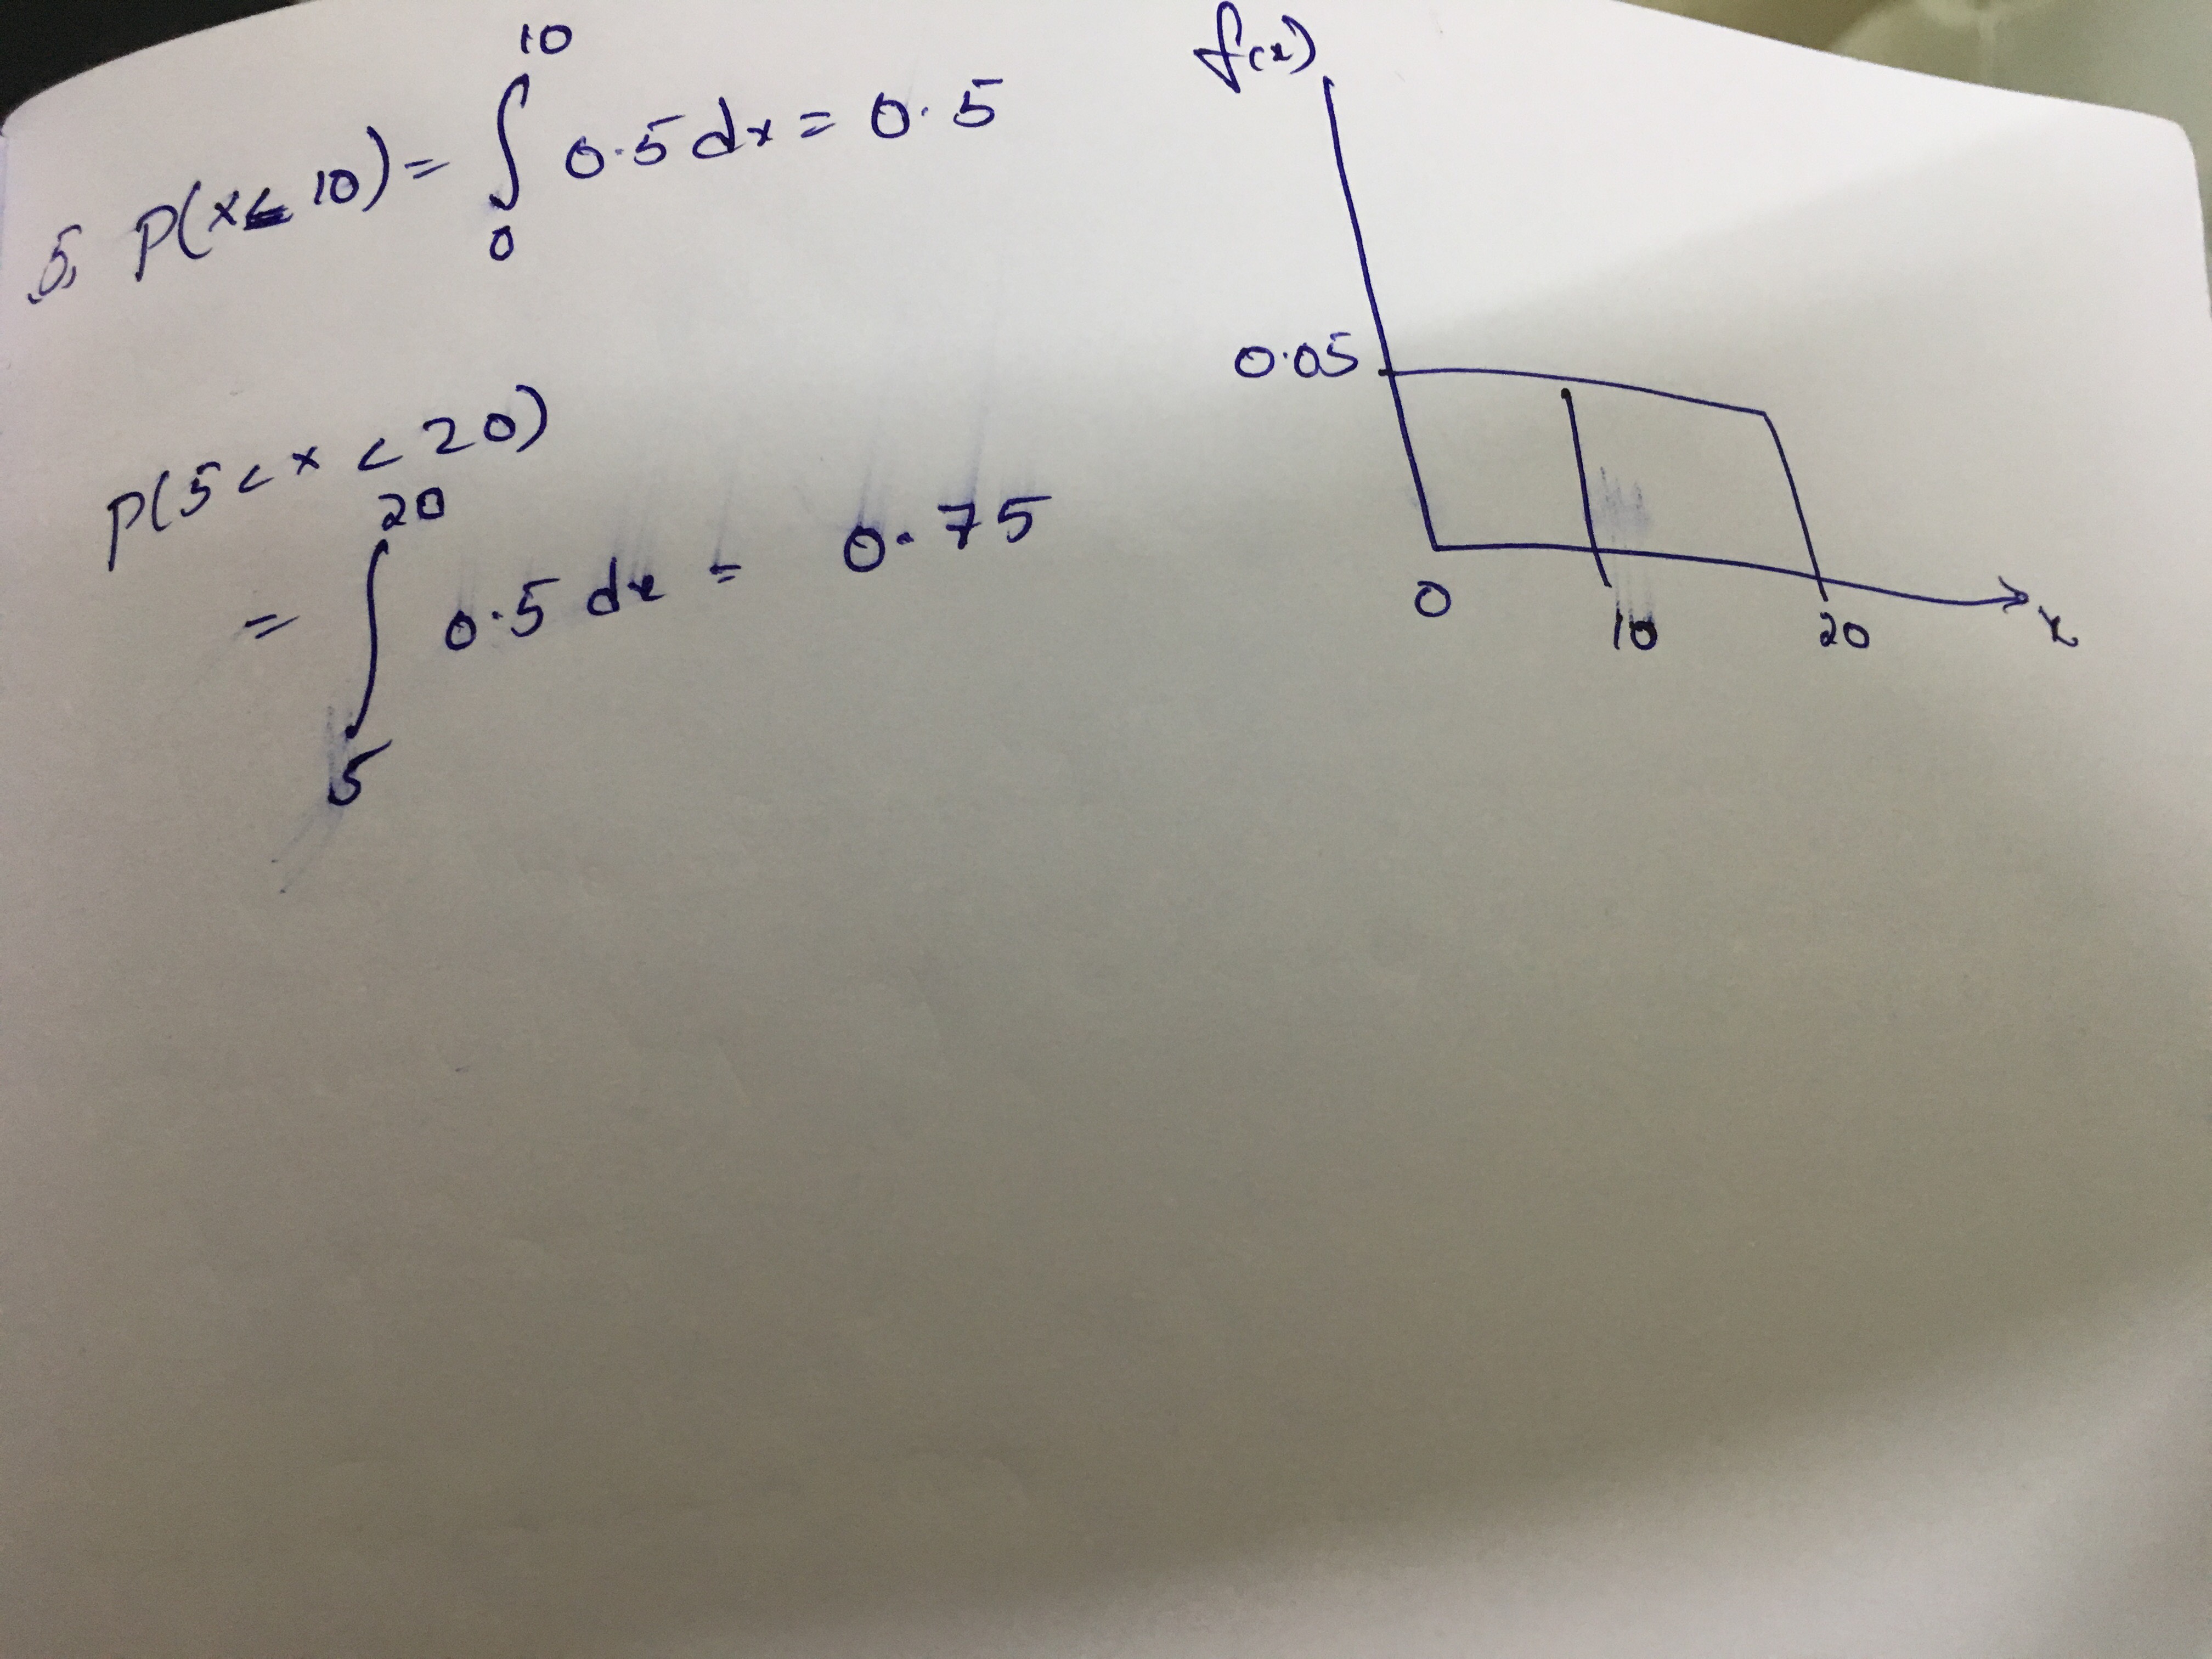 b, P(x< 10) = ∫ 0 10 0.5 dx = 0.5
P(5 < x < 20)
= ∫ 5 20 0.5 dx = 0.75
f(x)
0.05
0 10 20 x